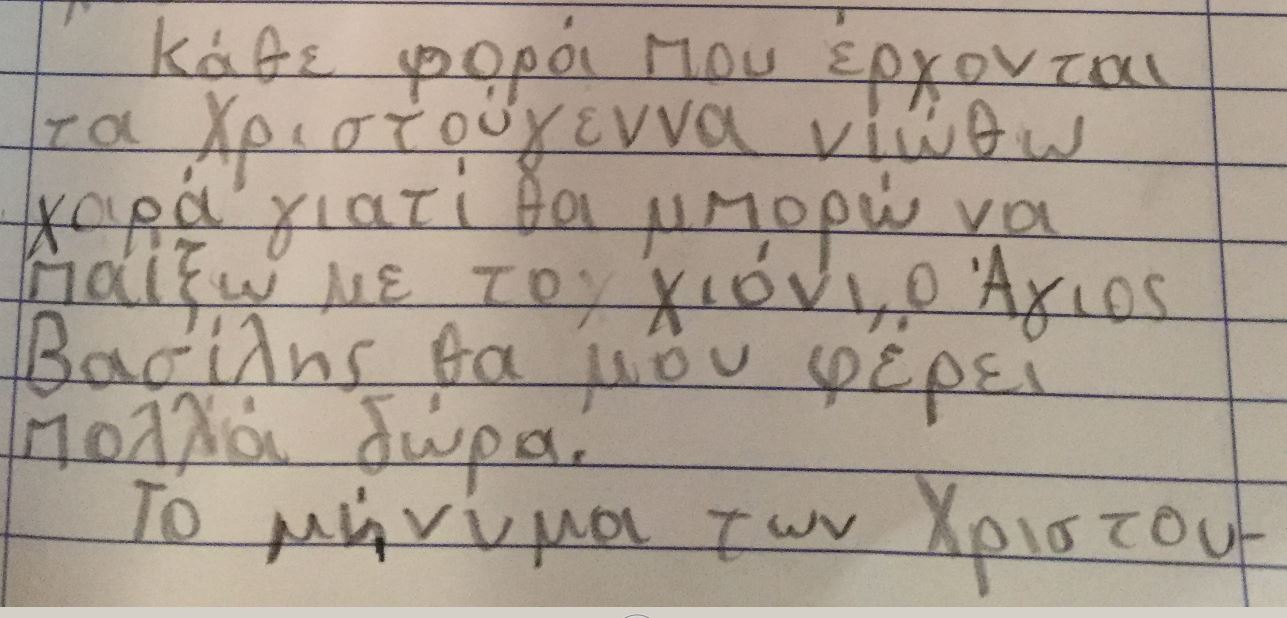 Κάθε φορά που έρχονται
τα Χριστούγεννα νιώθω
χαρά γιατί θα μπορώ να
παίξω με το χιόνι, ο Άγιος
Βασίλης θα μου φέρει
πολλά δώρα.
Το μήνυμα των Χριστου-